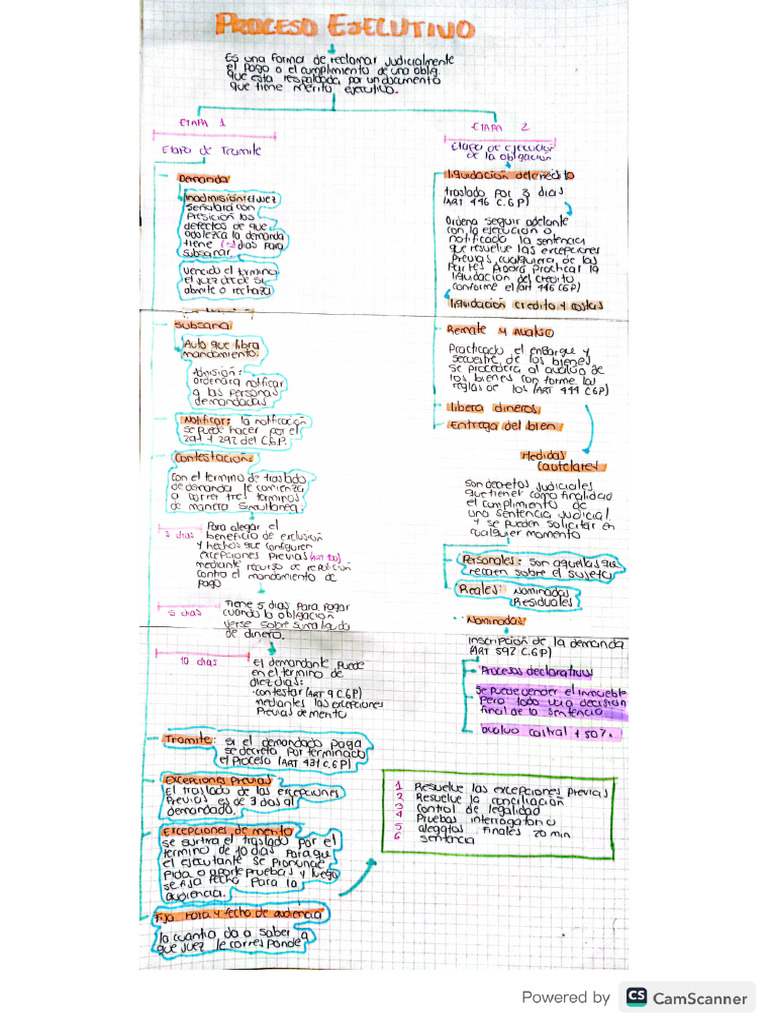 PROCESO EJECUTIVO
Es una forma de reclamar judicialmente
el pago o el cumplimiento de una oblig.
que esta respaldada por un documento
que tiene merito ejecutivo.
ETAPA 1
Etapa de Tramite
Demanda
Inadmisión: el juez
señalara con
presición los
defectos de que
adolezca la demanda
tiene dias para
subsanar.
vencido el termino
el juez decide si
admite o rechaza
Subsana
Auto que libra
mandamiento:
Admisión:
ordenara notificar
a las personas
demandadas
Notificar: la notificación
se puede hacer por el
291 y 292 del C.G.P.
Contestación
Con el termino de traslado
de demanda le comienza
a correr tres terminos
de manera simultanea:
3 dias
Para alegar el
beneficio de exclusión
y hechos que configuren
excepciones previas
mediante recurso de reposición
contra el mandamiento de
pago
5 dias
Tiene 5 dias para pagar
cuando la obligacion
verse sobre suma liquida
de dinero.
10 dias
El demandante puede
en el termino de
diez dias:
contestar (ART 9 C.G.P)
mediantes las excepciones
Previas de merito
Tramite: si el demandado paga
se decreta por terminado
el proceso (ART 431 C.G.P)
Excepciones Previas
El traslado de las excepciones
Previas es de 3 dias al
demandado.
Excepciones de merito
se surtira el traslado por el
termino de 10 dias para que
el ejecutante se pronuncie
pida o aporte pruebas y luego
se fija fecha para la
audiencia.
Fija hora y fecha de audiencia
la cuantia da a saber a
que juez le corresponde
ETAPA 2
Etapa de ejecución
de la obligación
liquidación del credito
traslado por 3 dias
(ART 446 C.G.P)
Ordena seguir adelante
con la ejecución o
notificado la sentencia
que resuelve las excepciones
Previas, cualquiera de las
Partes Podra practicar la
liquidacion del credito
conforme el Art 446 CGP)
liquidación credito y costas
Remate y avaluo
Practicado el embargue y
secuestre de los bienes
se procedera al avaluo de
los bienes con forme las
reglas de los (ART 444 C.G.P)
libera dineros
Entrega del bien
Medidas
Cautelares
Son decretos judiciales
que tienen como finalidad
el cumplimiento de
una sentencia judicial
y se pueden solicitar en
cualquier momento
Personales: son aquellas que
recaen sobre el sujeto
Reales: Nominadas
Residuales
Nominadas
inscripción de la demanda
(ART 592 C.G.P)
Procesos declarativos
Se puede vender el inmueble
pero todo va a decision
final de la sentencia
avaluo castral + 50%.
1 Resuelve las excepciones previas
2 Resuelve la conciliación
3 control de legalidad
4 Pruebas interrogatorio
5 alegatos finales 20 min
6 sentencia
Powered by CS CamScanner